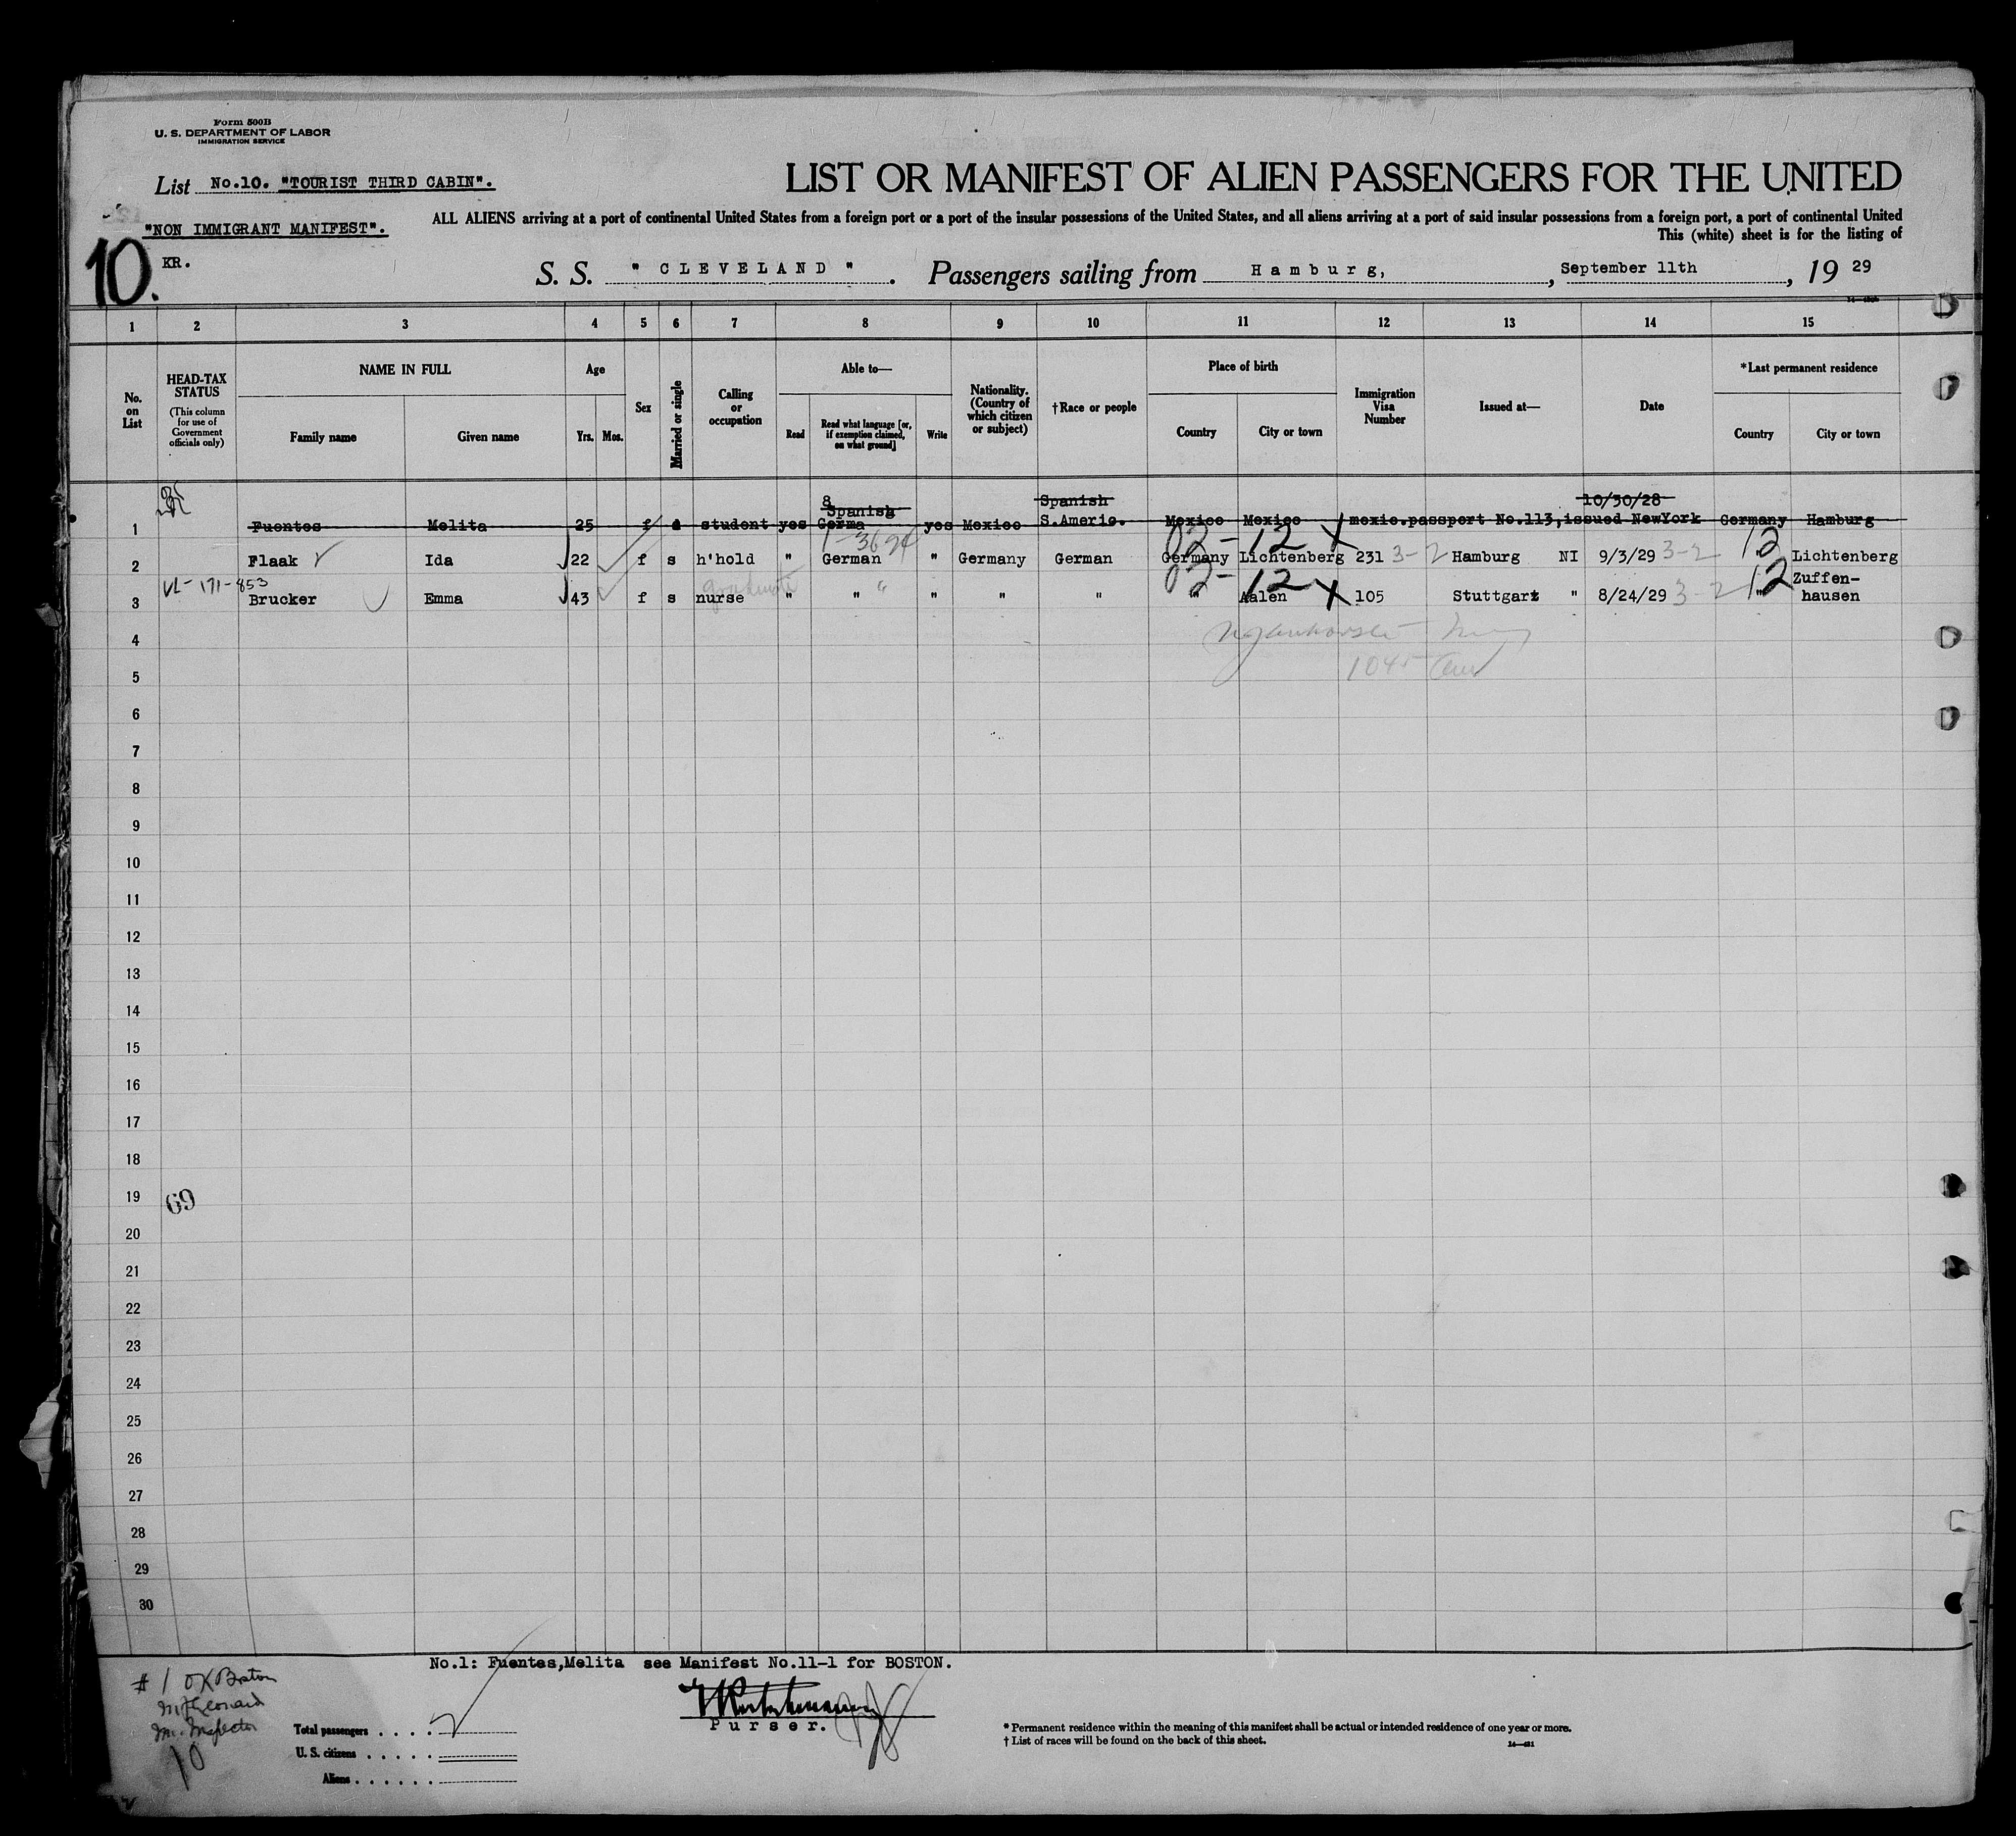 Form 500B
U. S. DEPARTMENT OF LABOR
IMMIGRATION SERVICE
List No.10. "TOURIST THIRD CABIN".
LIST OR MANIFEST OF ALIEN PASSENGERS FOR THE UNITED
"NON IMMIGRANT MANIFEST".
ALL ALIENS arriving at a port of continental United States from a foreign port or a port of the insular possessions of the United States, and all aliens arriving at a port of said insular possessions from a foreign port, a port of continental United
This (white) sheet is for the listing of
10. KR.
S. S. " CLEVELAND ". Passengers sailing from Hamburg, , September 11th , 19 29
1 2 3 4 5 6 7 8 9 10 11 12 13 14 15
No. on List HEAD-TAX STATUS (This column for use of Government officials only) NAME IN FULL Family name Given name Age Yrs. Mos. Sex Married or single Calling or occupation Able to— Read Read what language [or, if exemption claimed, on what ground] Write Nationality. (Country of which citizen or subject) †Race or people Place of birth Country City or town Immigration Visa Number Issued at— Date *Last permanent residence Country City or town
8 Spanish Spanish 10/30/28
1 Fuentes Melita 25 f student yes Germa yes Mexico S.Americ. Mexico Mexico mexic.passport No.113,issued NewYork Germany Hamburg
02- 12 X 12
2 Flaak Ida 22 f s h'hold " German " Germany German Germany Lichtenberg 231 3-2 Hamburg NI 9/3/29 3-2 Lichtenberg
VL- 171-853 02- 12 X 12 Zuffen-
3 Brucker Emma 43 f s graduate nurse " " " " " " Aalen 105 Stuttgart " 8/24/29 3-2 " hausen
4
1045
5
6
7
8
9
10
11
12
13
14
15
16
17
18
19 69
20
21
22
23
24
25
26
27
28
29
30
No.1: Fuentes,Melita see Manifest No.11-1 for BOSTON.
# 1 OK Boston
Im. Inspector
10
Purser.
Total passengers . . . .
U. S. citizens . . . . .
Aliens . . . . . .
* Permanent residence within the meaning of this manifest shall be actual or intended residence of one year or more.
† List of races will be found on the back of this sheet.